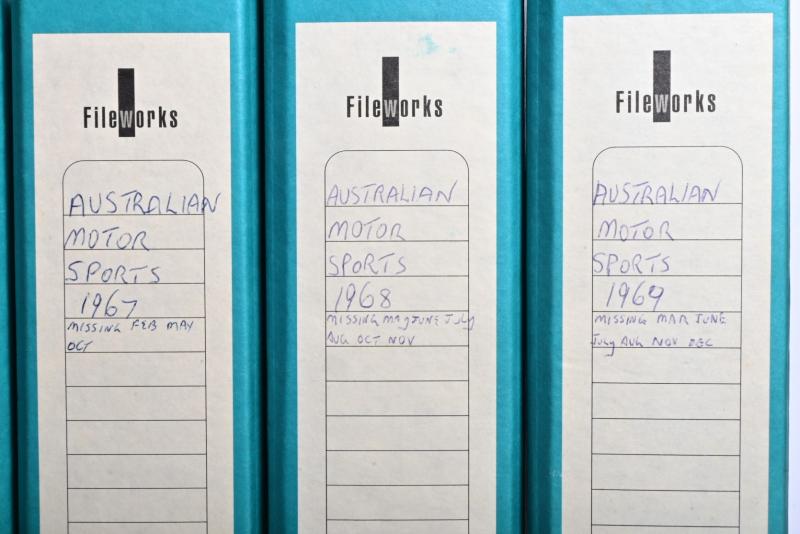 Fileworks
AUSTRALIAN
MOTOR
SPORTS
1967
MISSING FEB MAY
OCT
Fileworks
AUSTRALIAN
MOTOR
SPORTS
1968
MISSING MAY JUNE JULY
AUG OCT NOV
Fileworks
AUSTRALIAN
MOTOR
SPORTS
1969
MISSING MAR JUNE
July AUG NOV DEC